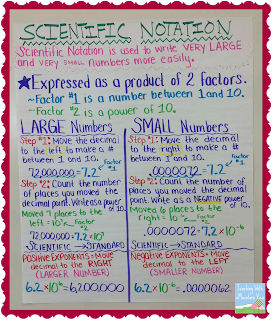 SCIENTIFIC NOTATION
Scientific Notation is used to write VERY LARGE
and VERY SMALL numbers more easily.
★Expressed as a product of 2 factors.
~Factor #1 is a number between 1 and 10.
~Factor #2 is a power of 10.
LARGE Numbers
Step #1: Move the decimal
to the left to make a #
between 1 and 10.
Factor #1
72,000,000 = 7.2
Step #2: Count the number
of places you moved the
decimal point. Write as a power
of 10.
Moved 7 places to the
left = 10⁷ Factor #2
72,000,000 = 7.2 × 10⁷
SCIENTIFIC → STANDARD
POSITIVE EXPONENTS = Move
decimal to the RIGHT
(LARGER NUMBER)
6.2×10⁶ = 6,200,000
SMALL Numbers
Step #1: Move the decimal
to the right to make a #
between 1 and 10.
Factor #1
.0000072 = 7.2
Step #2: Count the number
of places you moved the decimal
point. Write as a NEGATIVE power
of 10.
Moved 6 places to the
right = 10⁻⁶ Factor #2
.0000072 = 7.2 × 10⁻⁶
SCIENTIFIC → STANDARD
NEGATIVE EXPONENTS = Move
decimal to the LEFT
(SMALLER NUMBER)
6.2×10⁻⁶ = .0000062